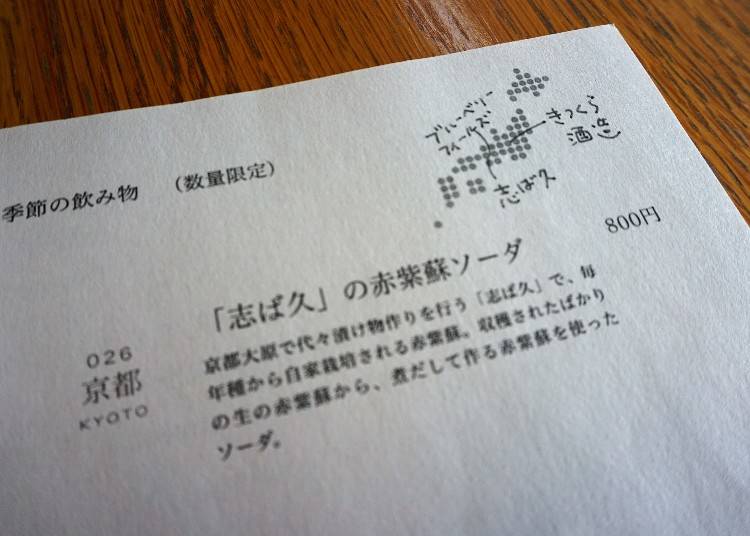 ブルーベリー
フィールズ
きつくら
酒造
志ば久
季節の飲み物 (数量限定)
800円
「志ば久」の赤紫蘇ソーダ
026
京都
KYOTO
京都大原で代々漬け物作りを行う「志ば久」で、毎
年種から自家栽培される赤紫蘇。収穫されたばかり
の生の赤紫蘇から、煮だして作る赤紫蘇を使った
ソーダ。